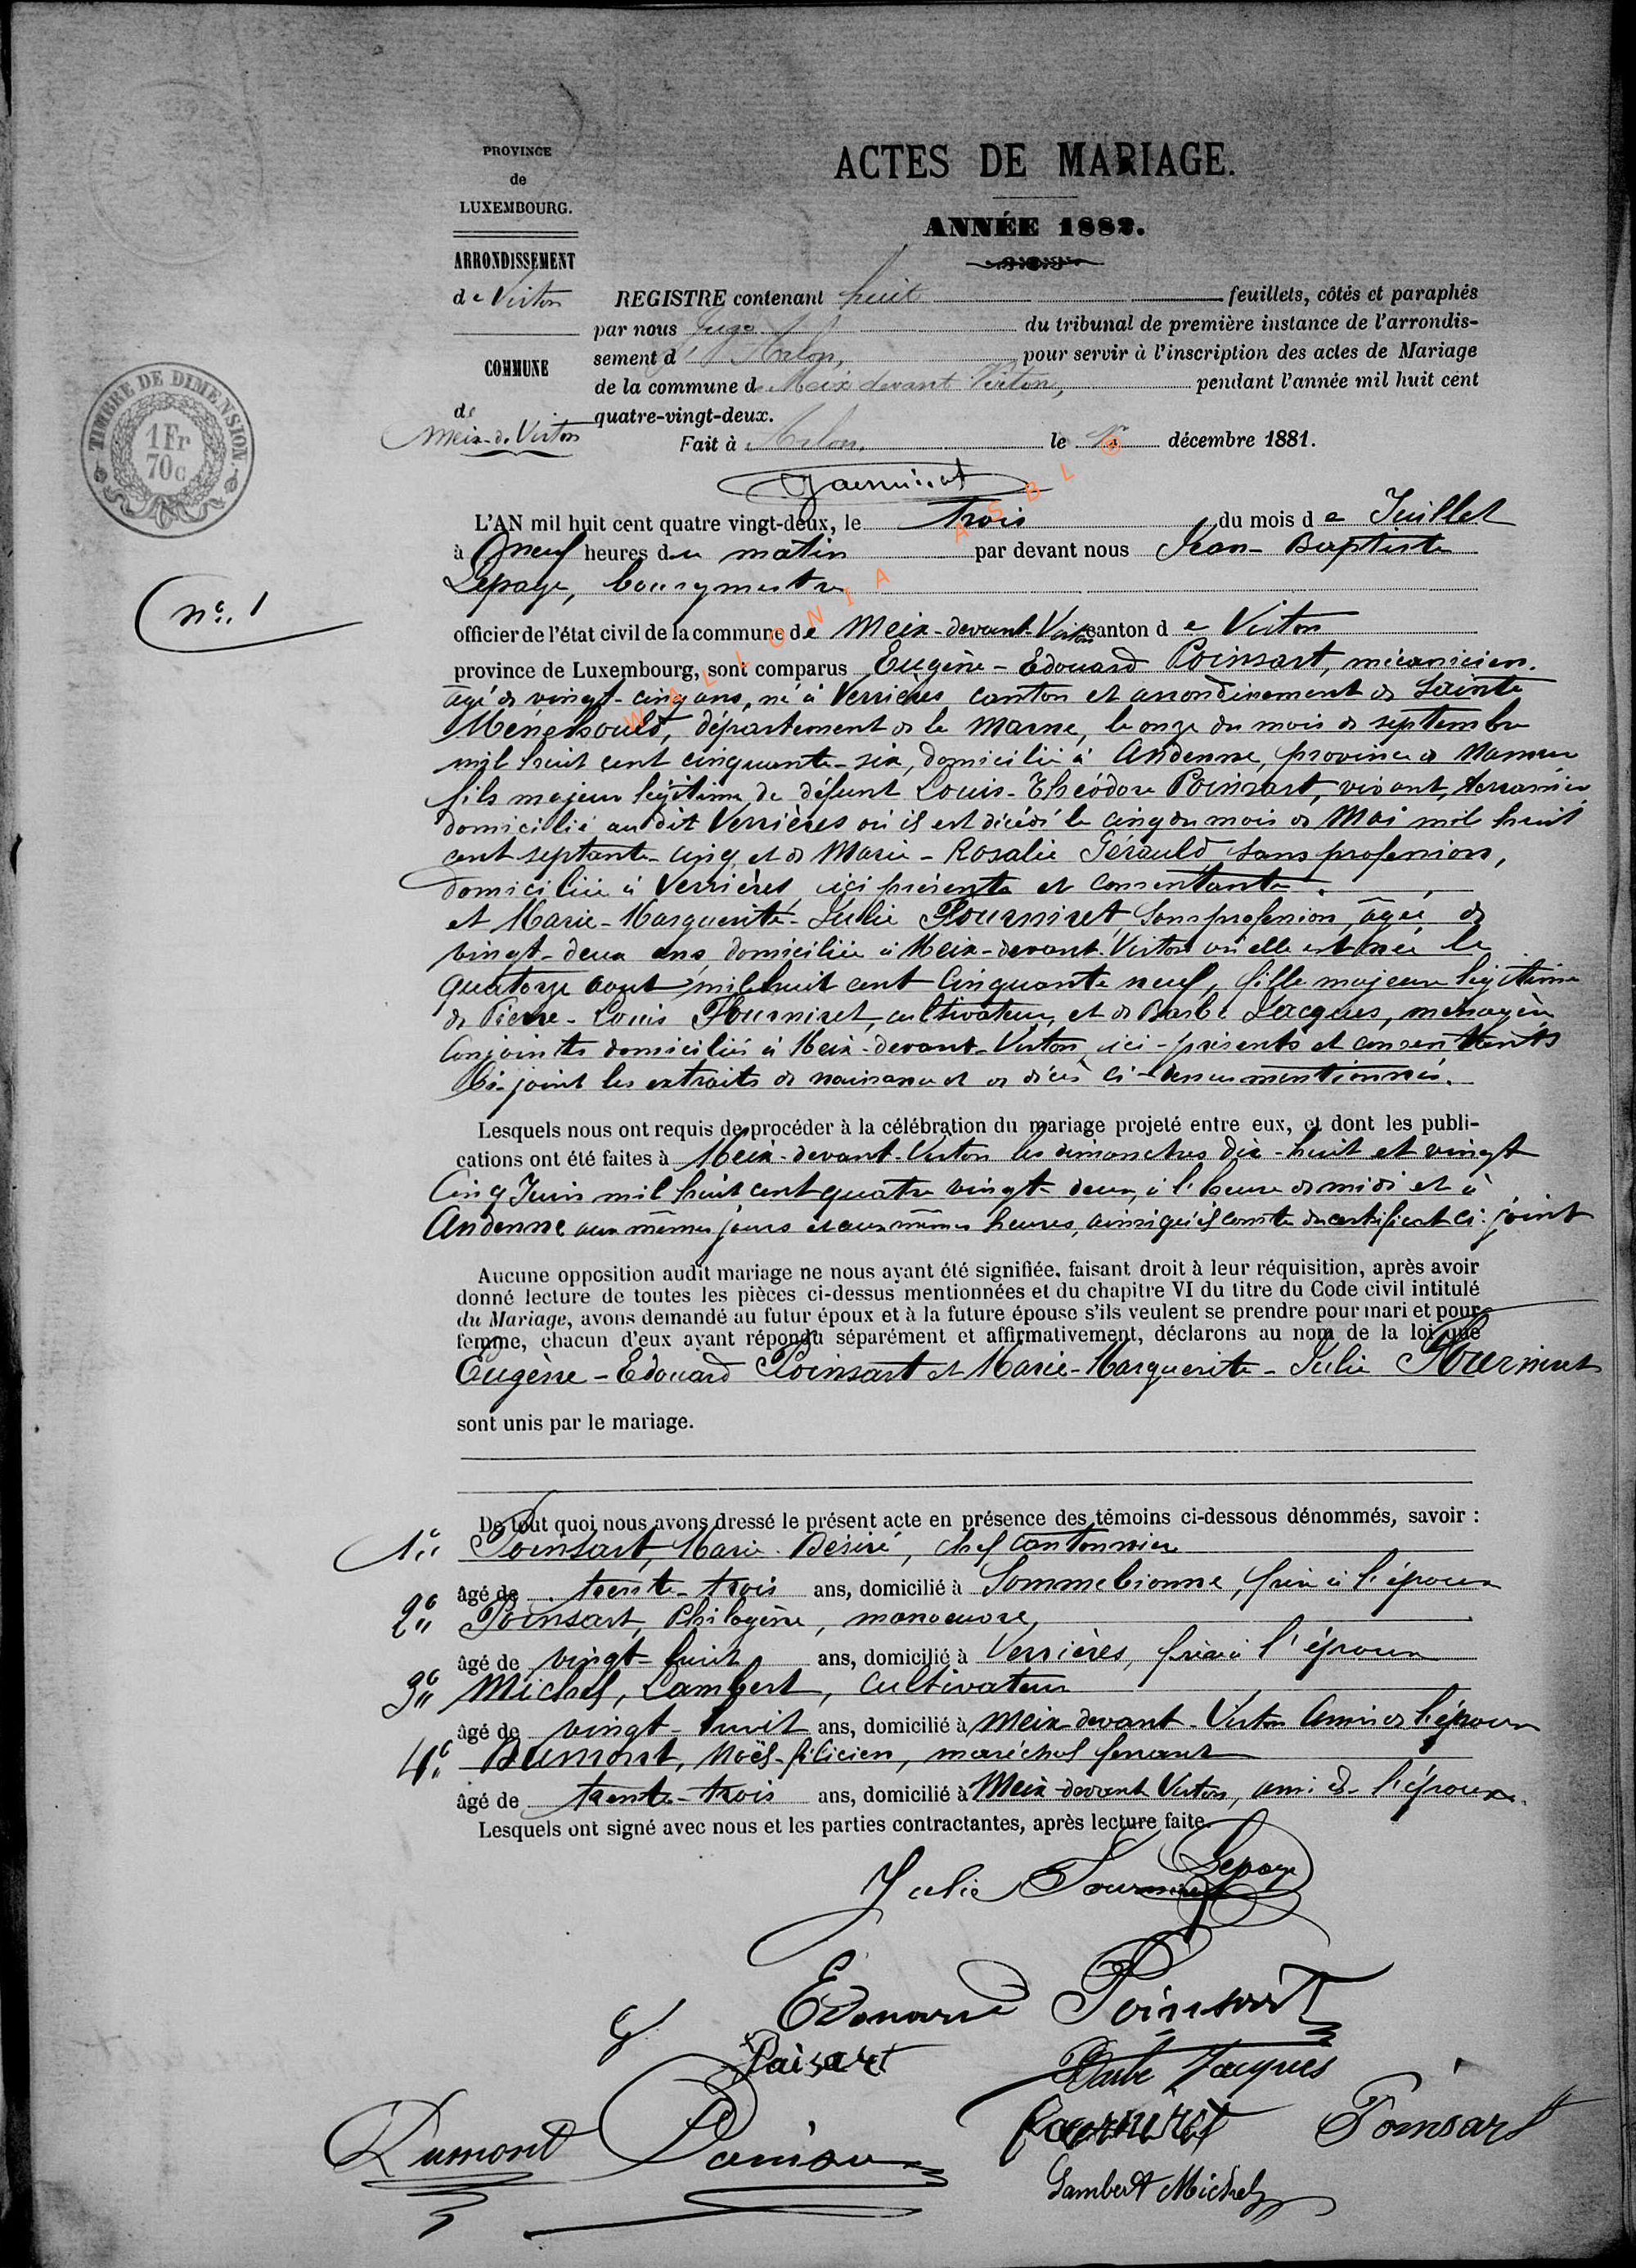 PROVINCE
de
LUXEMBOURG.
ARRONDISSEMENT
de Virton
COMMUNE
de
Meix-d-Virton
TIMBRE DE DIMENSION.
1Fr
70c
ACTES DE MARIAGE.
ANNÉE 1882.
REGISTRE contenant huit feuillets, côtés et paraphés
par nous Juge du tribunal de première instance de l'arrondis-
sement d'Arlon, pour servir à l'inscription des actes de Mariage
de la commune de Meix devant Virton, pendant l'année mil huit cent
quatre-vingt-deux.
Fait à Arlon, le décembre 1881.
WALLONIA ASBL
n°. 1
L'AN mil huit cent quatre vingt-deux, le trois du mois de Juillet
à neuf heures du matin par devant nous Jean-Baptiste
Lepage, bourgmestre
officier de l'état civil de la commune de Meix-devant-Virton canton de Virton
province de Luxembourg, sont comparus Eugène-Edouard Poinsart, mécanicien.
âgé de vingt-cinq ans, né à Verrières canton et arrondissement de Sainte
Ménéhould, département de la Marne, le onze du mois de septembre
mil huit cent cinquante-six, domicilié à Andenne, province de Namur
fils majeur légitime de défunt Louis-Théodore Poinsart, vivant, terrassier
domicilié audit Verrières où il est décédé le cinq du mois de Mai mil huit
cent septante-cinq et de Marie-Rosalie Gérauld sans profession,
domiciliée à Verrières, ici présente et consentante.
et Marie-Marguerite-Julie Fourniret, sans profession, âgée de
vingt-deux ans, domiciliée à Meix-devant-Virton où elle est née le
quatorze août mil huit cent cinquante neuf, fille majeure légitime
de Pierre-Louis Fourniret, cultivateur, et de Barbe Jacques, ménagère
conjoints domiciliés à Meix-devant-Virton, ici-présents et consentants
Ci-joint les extraits de naissance et de décès ci-dessus mentionnés.
Lesquels nous ont requis de procéder à la célébration du mariage projeté entre eux, et dont les publi-
cations ont été faites à Meix-devant-Virton les dimanches dix-huit et vingt
Cinq Juin mil huit cent quatre vingt-deux, à l'heure de midi et à
Andenne aux mêmes jours et aux mêmes heures, ainsi qu'il conste du certificat ci-joint
Aucune opposition audit mariage ne nous ayant été signifiée, faisant droit à leur réquisition, après avoir
donné lecture de toutes les pièces ci-dessus mentionnées et du chapitre VI du titre du Code civil intitulé
du Mariage, avons demandé au futur époux et à la future épouse s'ils veulent se prendre pour mari et pour
femme, chacun d'eux ayant répondu séparément et affirmativement, déclarons au nom de la loi que
Eugène-Edouard Poinsart et Marie-Marguerite-Julie Fourniret
sont unis par le mariage.
De tout quoi nous avons dressé le présent acte en présence des témoins ci-dessous dénommés, savoir :
1° Poinsart, Marie-Désiré, chef cantonnier
âgé de trente-trois ans, domicilié à Sommebionne, frère à l'époux
2° Poinsart, Philogène, manoeuvre,
âgé de vingt-huit ans, domicilié à Verrières, frère à l'époux
3° Michel, Lambert, Cultivateur
âgé de vingt-huit ans, domicilié à Meix devant-Virton Ami de l'époux
4° Dumont, Noël-filicien, maréchal ferrant
âgé de trente-trois ans, domicilié à Meix-devant Virton, ami de l'époux.
Lesquels ont signé avec nous et les parties contractantes, après lecture faite.
Lepage
Julie Fourniret
Edouard Poinsart
Barbe Jacques
Dumont
Fourniret Poinsart
Lambert Michel